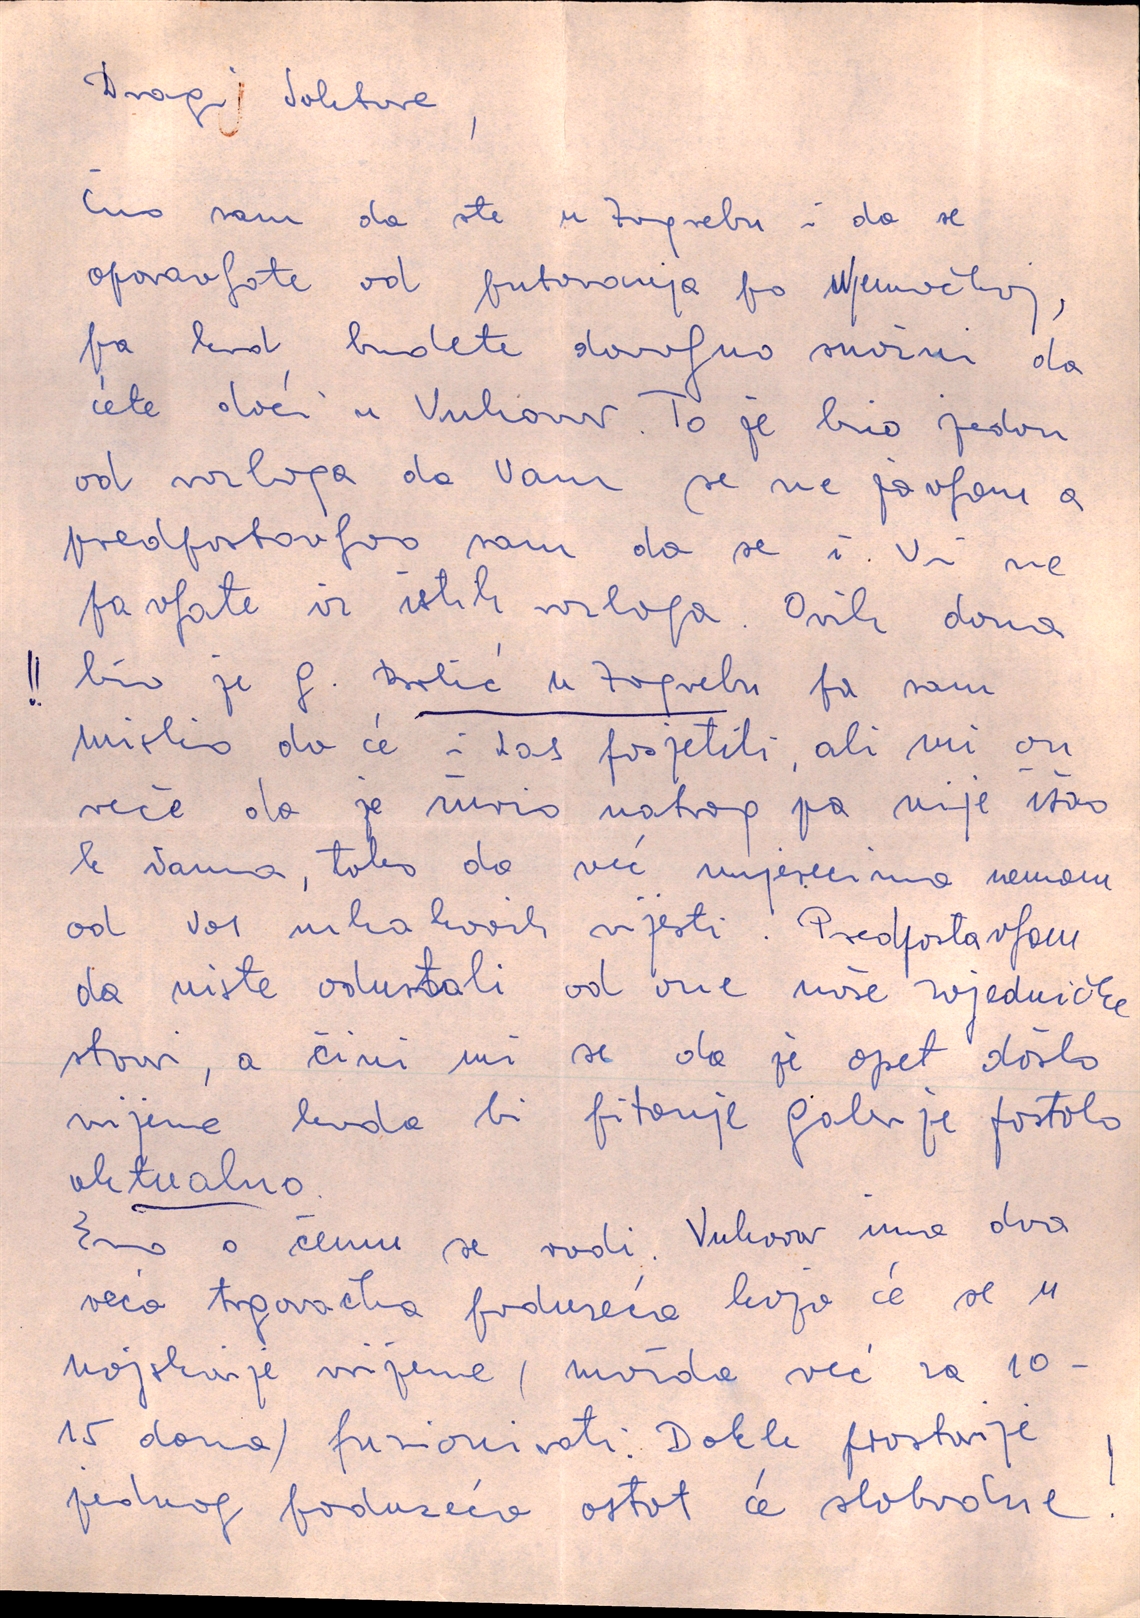 Dragi doktore,
Čuo sam da ste u Zagrebu i da se
oporavljate od putovanja po Njemačkoj,
pa kad budete dovoljno snažni da
ćete doći u Vukovar. To je bio jedan
od razloga da Vam se ne javljam a
predpostavljao sam da se i Vi ne
javljate iz istih razloga. Ovih dana
!! bio je g. Dorlić u Zagrebu pa sam
mislio da će i Vas posjetiti, ali mi on
reče da je žurio natrag pa nije išao
k Vama, tako da već mjesecima nemam
od Vas nikakvih vijesti. Predpostavljam
da niste odustali od one naše zajedničke
stvari, a čini mi se da je opet došlo
vrijeme kada bi pitanje galerije postalo
aktualno.
Evo o čemu se radi. Vukovar ima dva
veća trgovačka poduzeća koja će se u
najskorije vrijeme (možda već za 10-
15 dana) fuzionirati. Dakle prostorije
jednog poduzeća ostat će slobodne!